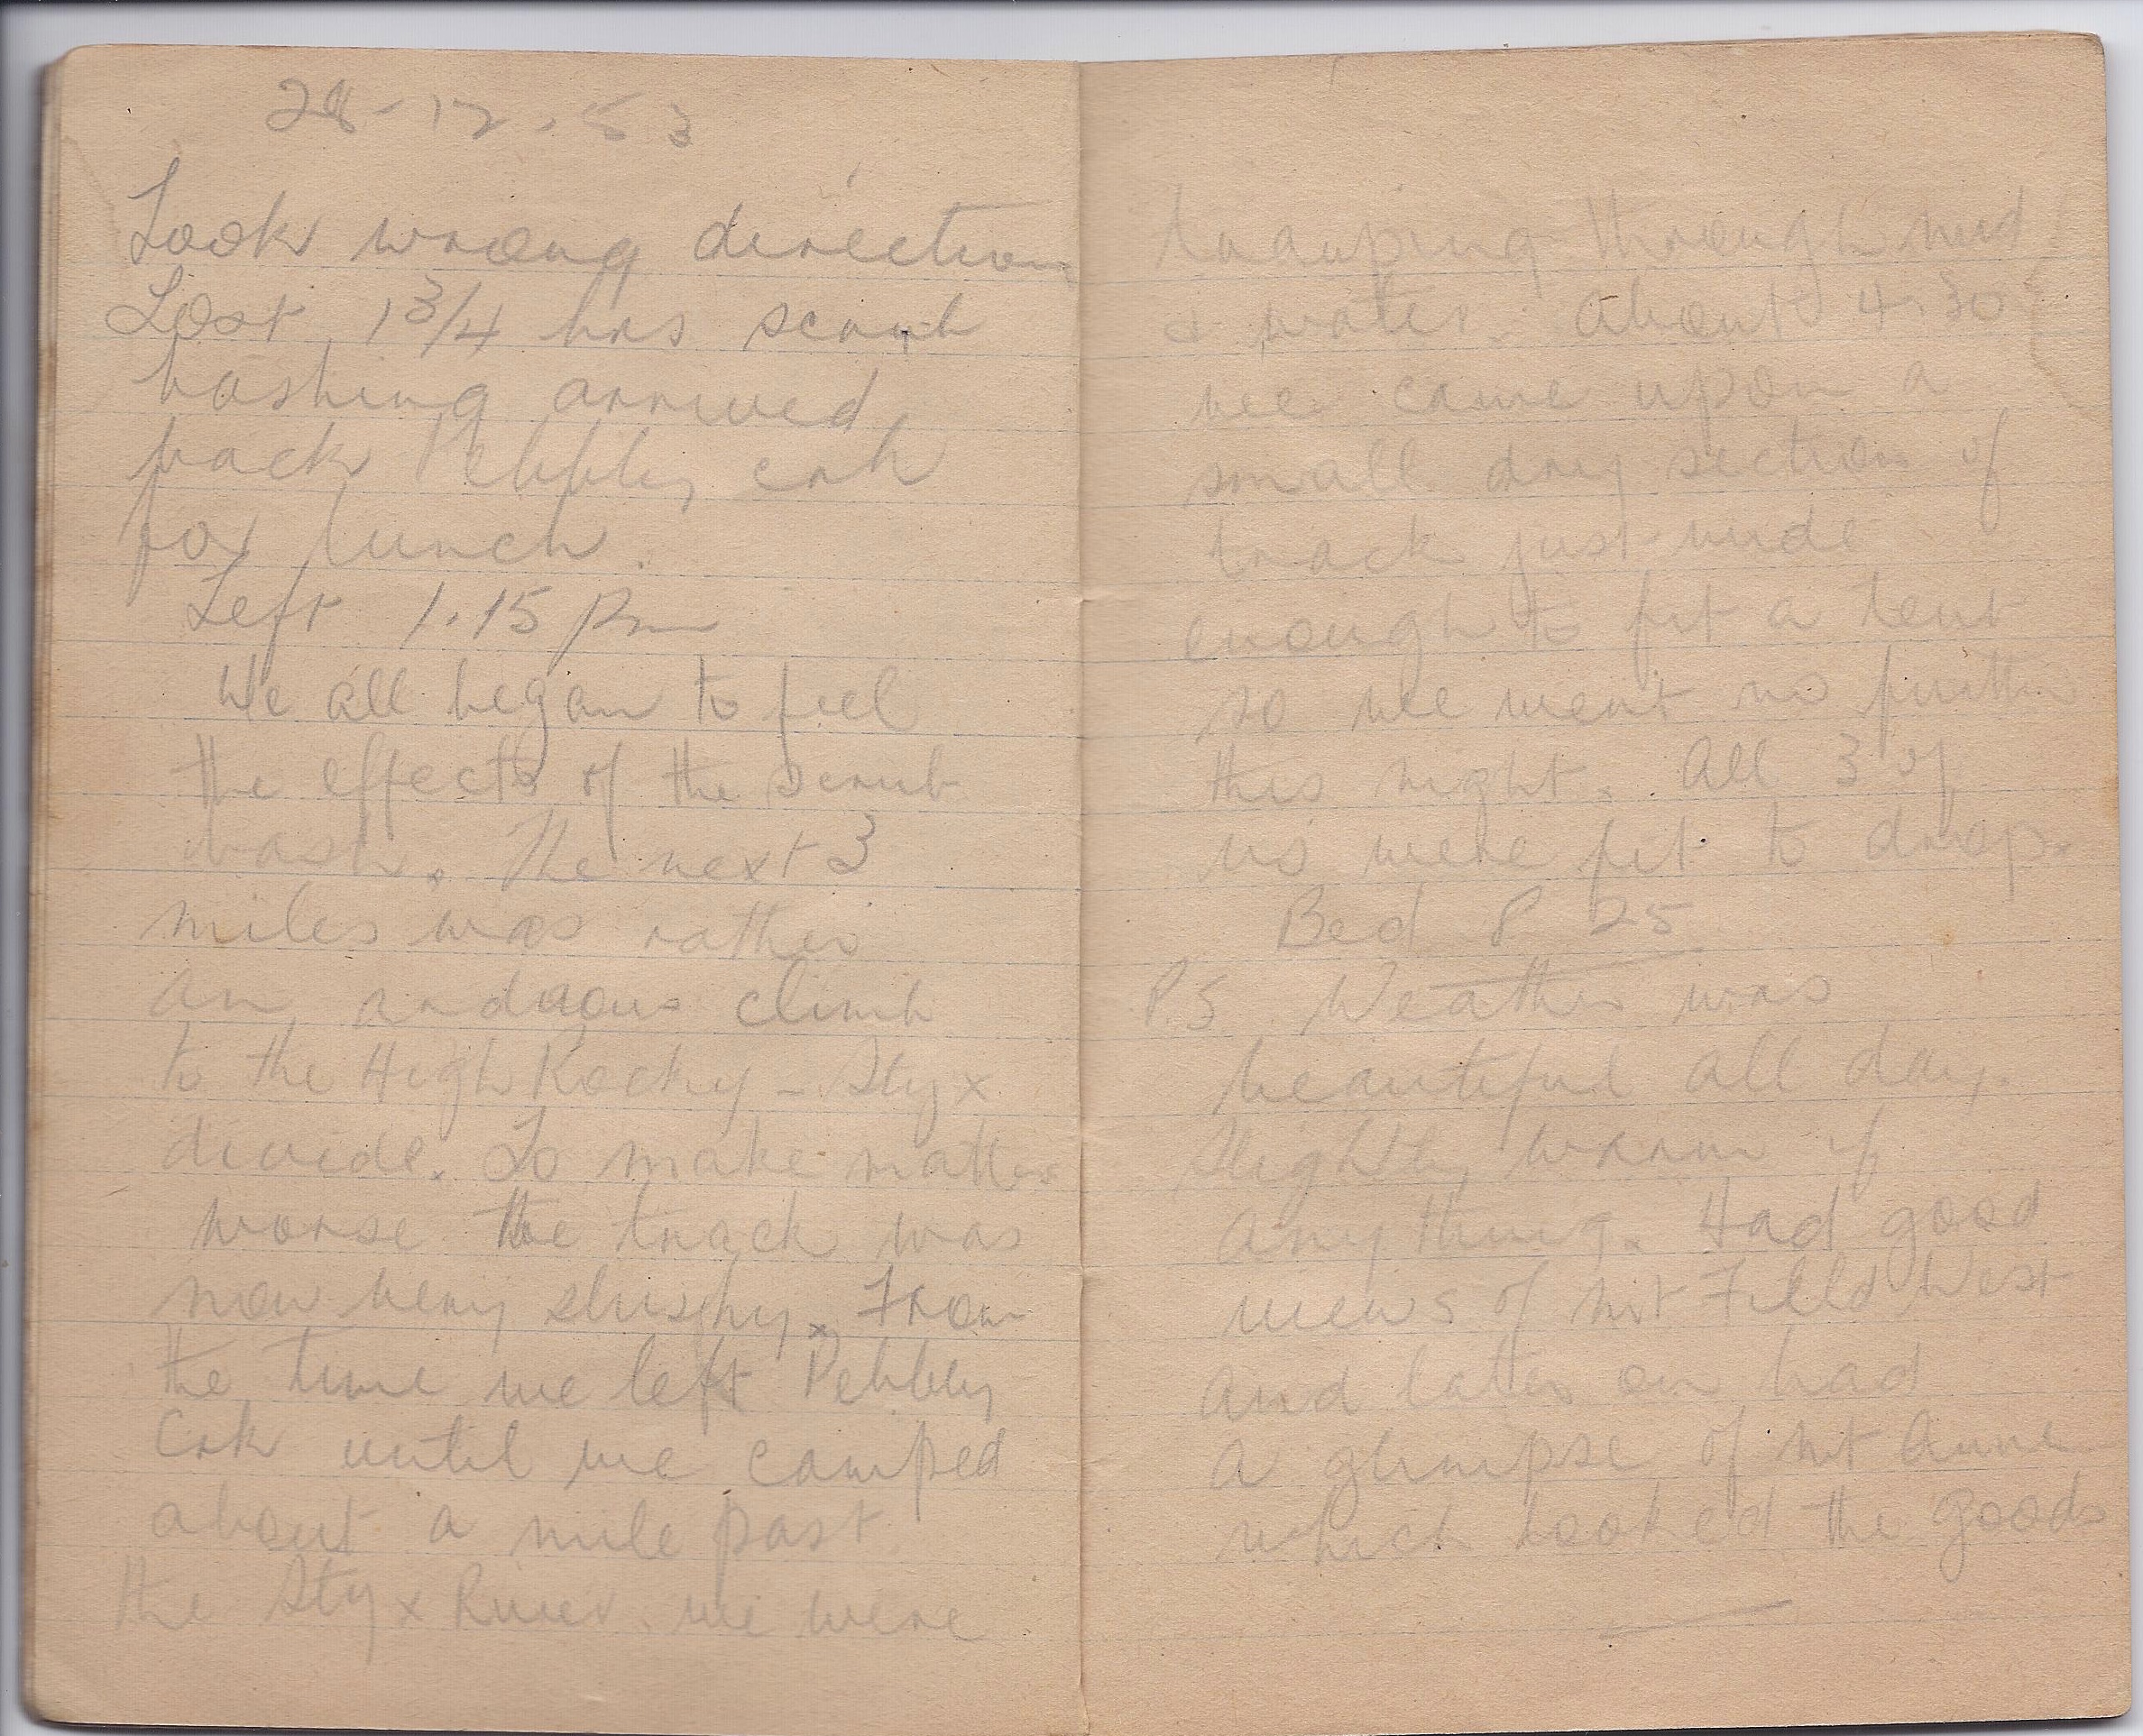 28-12-53
Took wrong direction
Lost 1 3/4 hrs scrub
bashing arrived
back Pebbly crk
for lunch.
Left 1.15 Pm
We all began to feel
the effects of the scrub
bash. The next 3
miles was rather
an arduous climb
to the High Rocky - Styx
divide. To make matters
worse the track was
now very slushy. From
the time we left Pebbly
Crk until we camped
about a mile past
the Styx River we were
tramping through mud
& water. About 4.30
we came upon a
small dry section of
track just wide
enough to fit a tent
so we went no further
this night. All 3 of
us were fit to drop.
Bed 8 25
P.S Weather was
beautiful all day.
Slightly warm if
anything. Had good
views of Mt Field West
and later on had
a glimpse of Mt Anne
which looked the goods